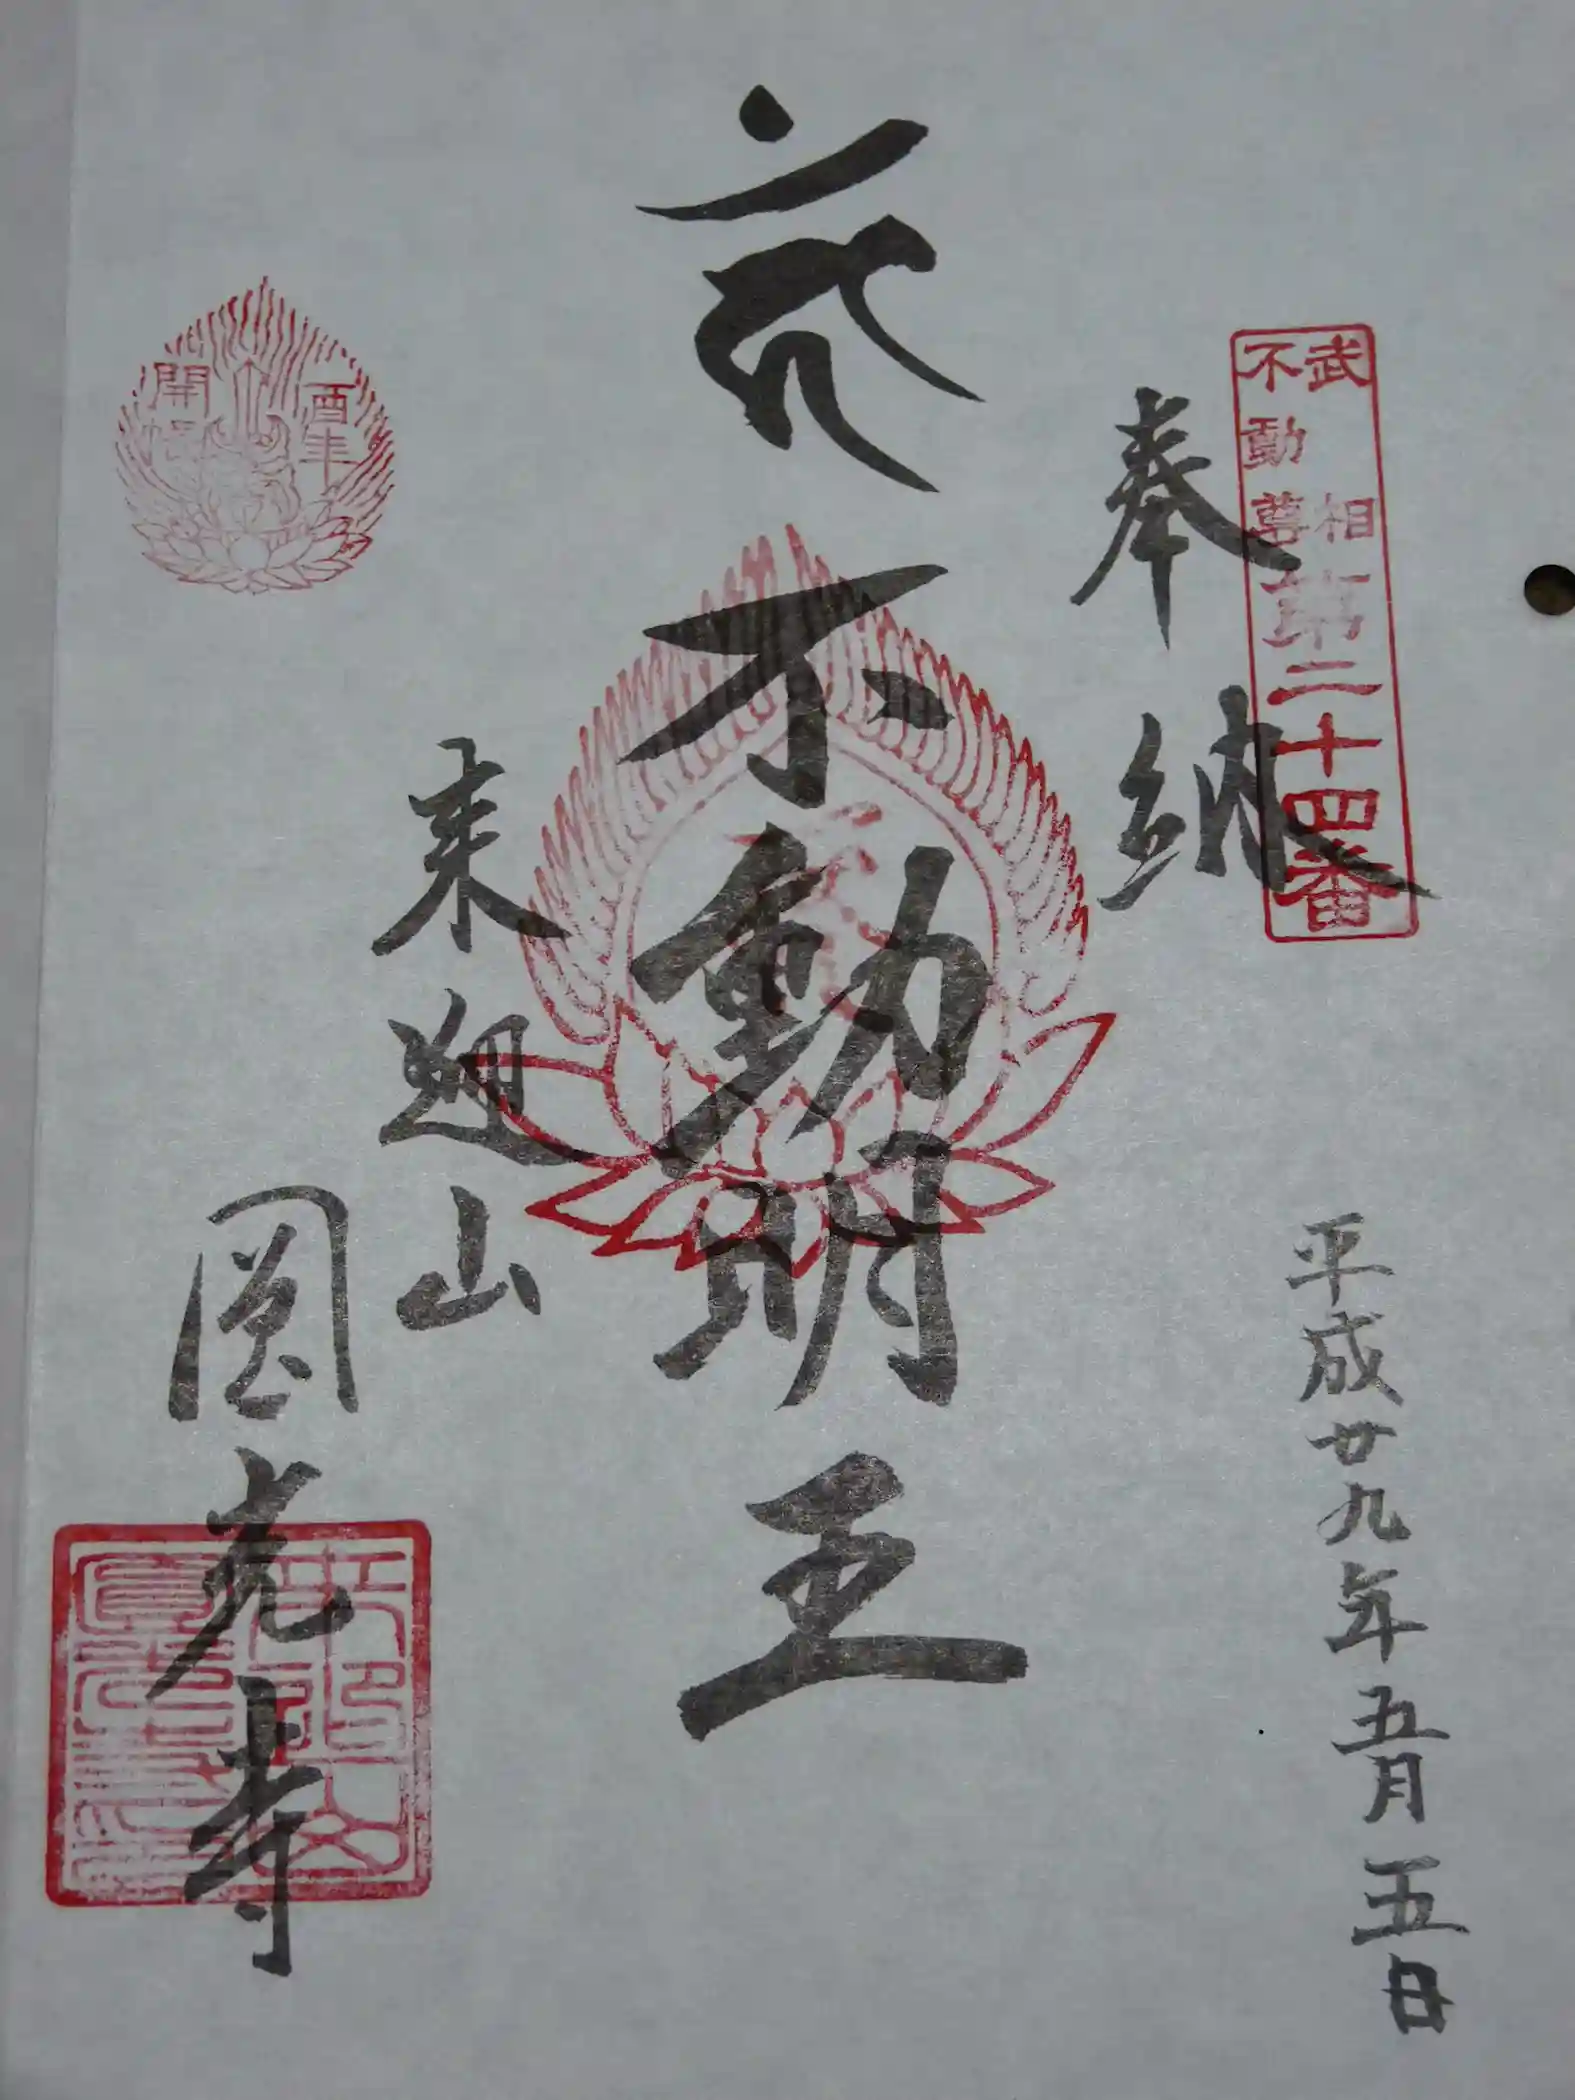 武相
不動尊
第二十四番
奉納
平成廿九年五月五日
不動明王
来迎山
圓光寺
酉年
開帳